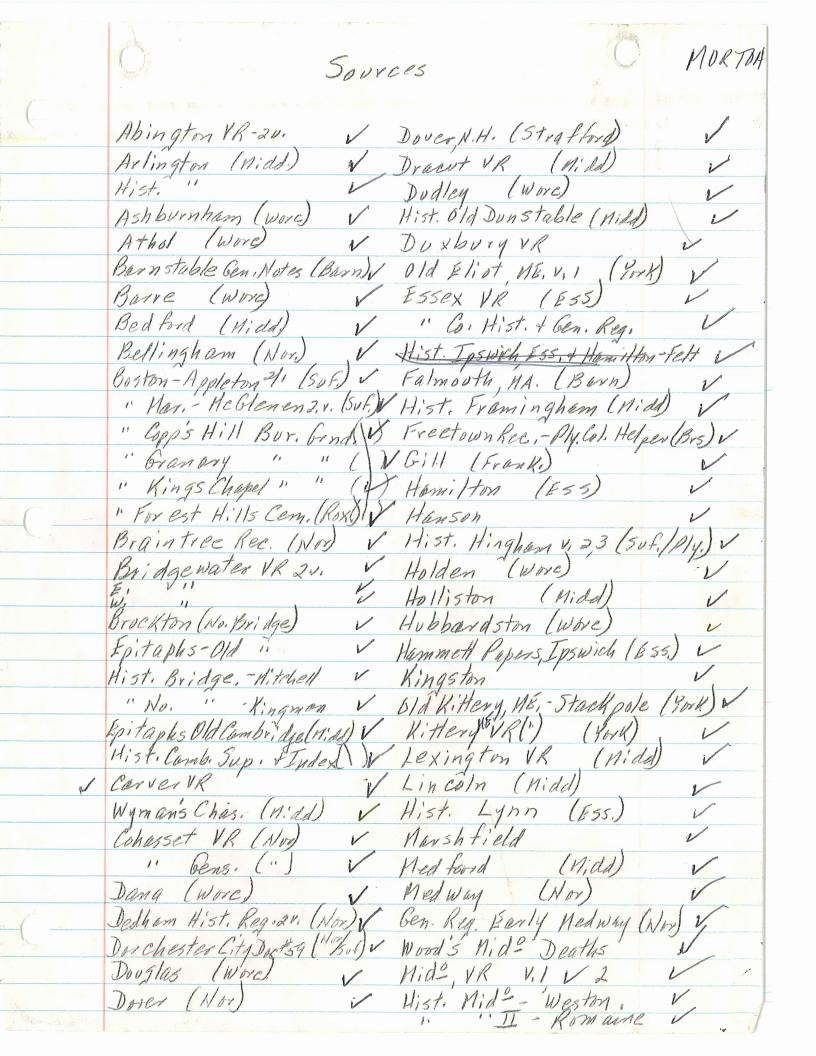 Sources
MORTON
Abington VR-2v. ✓
Arlington (Midd) ✓
Hist. " ✓
Ashburnham (Worc) ✓
Athol (Worc) ✓
Barnstable Gen. Notes (Barn) ✓
Barre (Worc) ✓
Bedford (Midd) ✓
Bellingham (Nor.) ✓
Boston-Appleton (Suf.) ✓
" Mar.- McGlenen 2.v. (Suf.) ✓
" Copp's Hill Bur. Grnd ✓
" Granary " " ( ) ✓
" Kings Chapel " " ( ) ✓
" Forest Hills Cem. (Rox) ✓
Braintree Rec. (Nor) ✓
Bridgewater VR 2v. ✓
E. " ✓
W. " ✓
Brockton (No. Bridge) ✓
Epitaphs-Old " ✓
Hist. Bridge.-Mitchell ✓
" No. " -Kingman ✓
Epitaphs Old Cambridge (Midd) ✓
Hist. Camb. Sup. + Index ( ) ✓
✓ Carver VR ✓
Wyman's Chas. (Midd) ✓
Cohasset VR (Nor) ✓
" Gens. (") ✓
Dana (Worc) ✓
Dedham Hist. Reg. 2v. (Nor) ✓
Dorchester City Doc #59 (Nor/Suf) ✓
Douglas (Worc) ✓
Dover (Nor) ✓
Dover, N.H. (Strafford) ✓
Dracut VR (Midd) ✓
Dudley (Worc) ✓
Hist. Old Dunstable (Midd) ✓
Duxbury VR ✓
Old Eliot, ME. v.1 (York) ✓
Essex VR (ESS) ✓
" Co. Hist. + Gen. Reg. ✓
Hist. Ipswich, Ess. + Hamilton-Felt ✓
Falmouth, MA. (Barn) ✓
Hist. Framingham (Midd) ✓
Freetown Rec.-Ply. Col. Helper (Brs) ✓
Gill (Frank.) ✓
Hamilton (ESS) ✓
Hanson ✓
Hist. Hingham v. 2,3 (Suf./Ply.) ✓
Holden (Worc) ✓
Holliston (Midd) ✓
Hubbardston (Worc) ✓
Hammett Papers, Ipswich (Ess.) ✓
Kingston ✓
Old Kittery, ME,-Stackpole (York) ✓
Kittery ME VR (") (York) ✓
Lexington VR (Midd) ✓
Lincoln (Midd) ✓
Hist. Lynn (Ess.) ✓
Marshfield ✓
Medford (Midd) ✓
Medway (Nor) ✓
Gen. Reg. Early Medway (Nor) ✓
Wood's Mid<sup>o</sup> Deaths ✓
Mid<sup>o</sup>, VR v.1 ✓ 2 ✓
Hist. Mid<sup>o</sup> - Weston. ✓
" " II - Romaine ✓